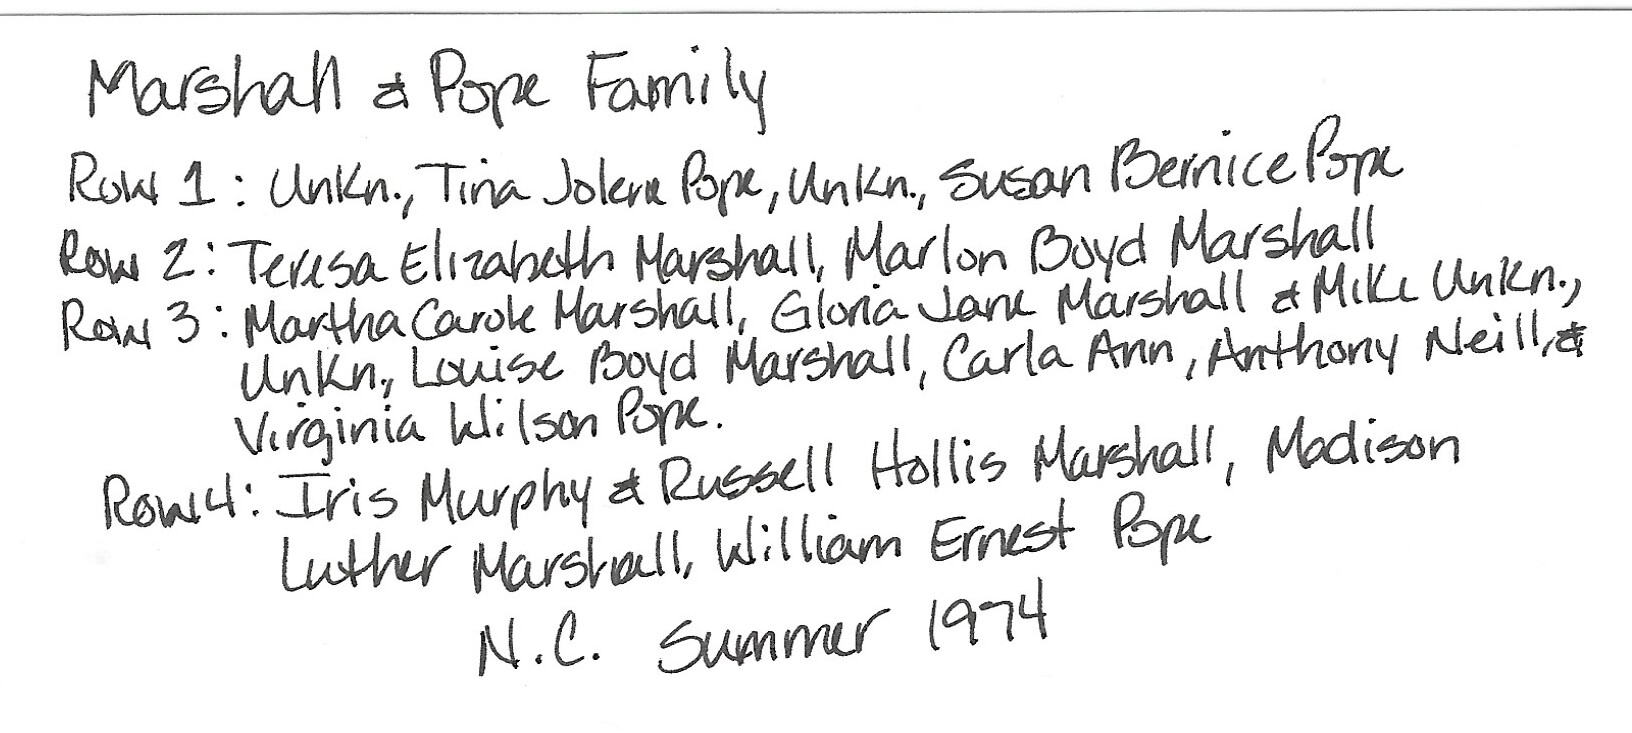 Marshall & Pope Family
Row 1: Unkn., Tina Jolene Pope, Unkn., Susan Bernice Pope
Row 2: Teresa Elizabeth Marshall, Marlon Boyd Marshall
Row 3: Martha Carole Marshall, Gloria Jane Marshall & Mike Unkn.,
Unkn., Louise Boyd Marshall, Carla Ann, Anthony Neill, &
Virginia Wilson Pope.
Row 4: Iris Murphy & Russell Hollis Marshall, Madison
Luther Marshall, William Ernest Pope
N.C. Summer 1974